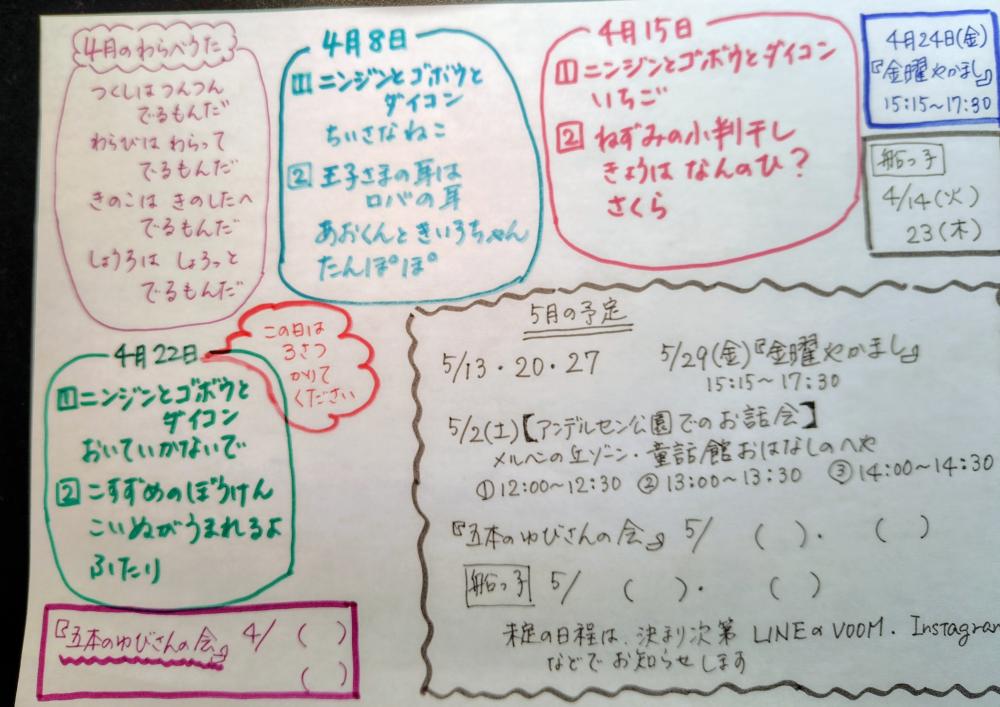 4月のわらべうた
つくしはつんつん
でるもんだ
わらびは わらって
でるもんだ
きのこは きのしたへ
でるもんだ
しょうろは しょろっと
でるもんだ
4月8日
1 ニンジンとゴボウと
ダイコン
ちいさなねこ
2 王子さまの耳は
ロバの耳
あおくんときいろちゃん
たんぽぽ
4月15日
1 ニンジンとゴボウとダイコン
いちご
2 ねずみの小判干し
きょうは なんのひ?
さくら
4月24日(金)
『金曜やかまし』
15:15~17:30
船っ子
4/14(火)
23(木)
4月22日
1 ニンジンとゴボウと
ダイコン
おいていかないで
2 こすずめのぼうけん
こいぬがうまれるよ
ふたり
この日は
3さつ
かりて
ください
『五本のゆびさんの会』 4/ ( )
( )
5月の予定
5/13・20・27
5/29(金)『金曜やかまし』
15:15~17:30
5/2(土)【アンデルセン公園でのお話会】
メルヘンの丘ゾーン・童話館おはなしのへや
①12:00~12:30 ②13:00~13:30 ③14:00~14:30
『五本のゆびさんの会』 5/ ( )・ ( )
船っ子 5/ ( )・ ( )
未定の日程は、決まり次第 LINEのVOOM、Instagram
などでお知らせします